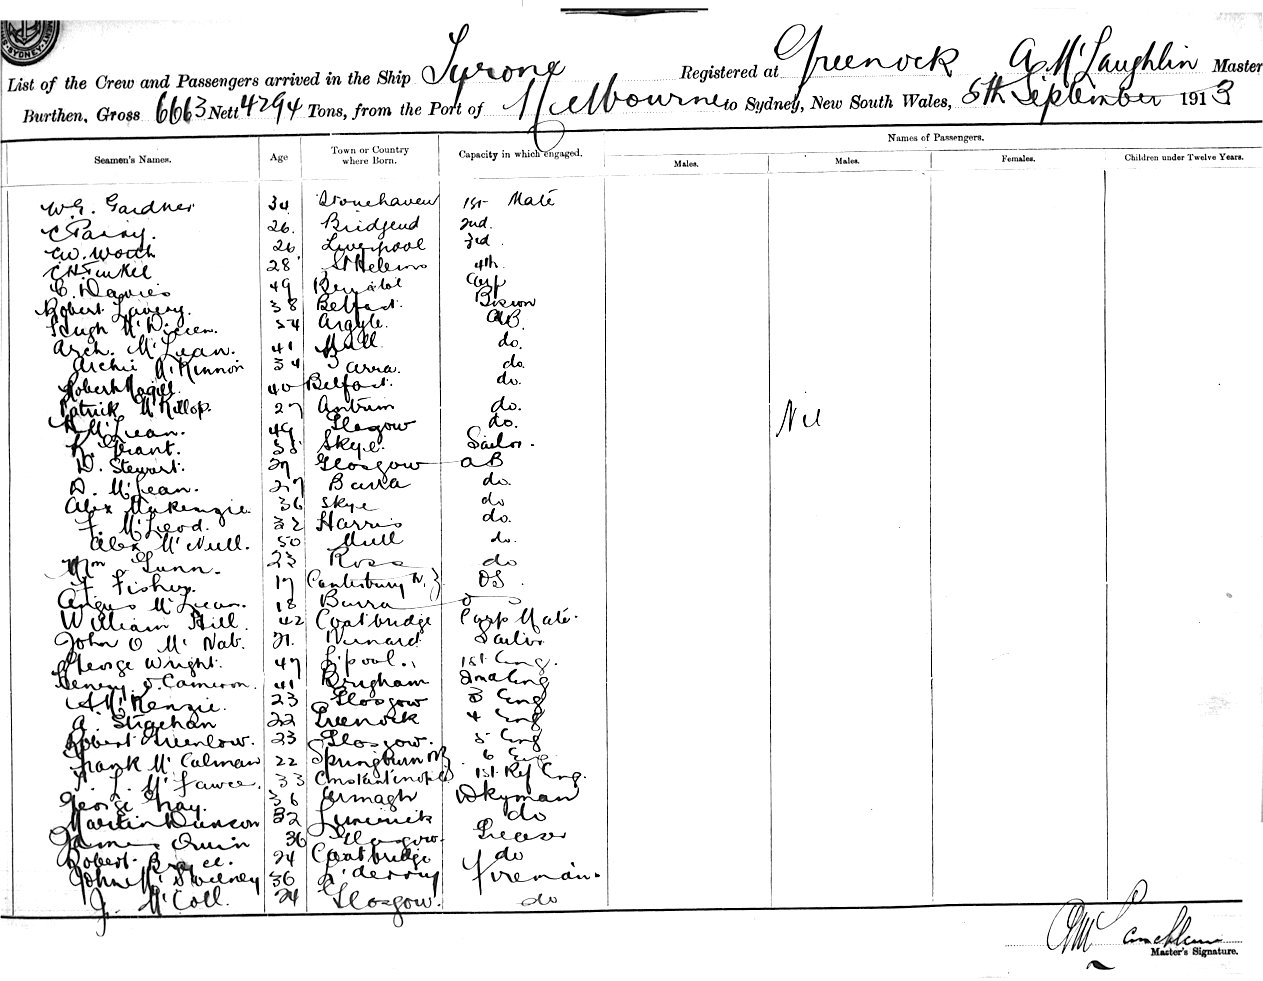 SYDNEY
List of the Crew and Passengers arrived in the Ship Tyrone Registered at Greenock A McLaughlin Master
Burthen, Gross 6663 Nett 4294 Tons, from the Port of Melbourne to Sydney, New South Wales, 5th September 1913
Names of Passengers.
Seamen's Names. Age Town or Country where Born. Capacity in which engaged. Males. Males. Females. Children under Twelve Years.
W.G. Gardner 34 Stonehaven 1st Mate
C Parry. 26. Bridgend 2nd.
26 Liverpool 3rd
28 St Helens 4th.
C. Davies 49 Carp
Robert Lavery. 38 Belfast. Bosun
Hugh 54 Argyle. AB.
Arch. McLean. 41 Mull do.
Archie McKinnon 34 Barra. do.
Robert Magill. 40 Belfast. do.
Patrick McKillop. 27 Antrim do.
McLean. 49 Glasgow do.
Grant. 55 Skye. Sailor.
D. Stewart. 27 Glasgow AB
D. McLean. 27 Barra do.
Alex MacKenzie 36 Skye do
F. McLeod. 32 Harris do.
Alex McNeill. 50 Mull do.
Wm Gunn. 23 Ross do
F Fisher. 17 Canterbury N.Z OS.
Angus McLean. 18 Barra
William Hill. 42 Coatbridge Carp Mate.
John O McNab. 21. Sailor
George Wright. 47 L'pool. 1st Eng.
Henry Cameron. 41 Bingham 2nd Eng
A McKenzie. 23 Glasgow 3 Eng
A. 22 Greenock 4 Eng
Robert Greenlow. 23 Glasgow. 5 Eng
Frank McCalman 22 Springburn 6 Eng
33 Constantinople 1st Ref Eng.
George Gray. 36 Armagh Dkyman
Martin Duncan 32 Limerick do
James Quin 36 Glasgow. Greaser
Robert 24 Coatbridge do
John McSweeney 36 L'derry Fireman.
J. McColl. 24 Glasgow. do
Nil
Master's Signature.